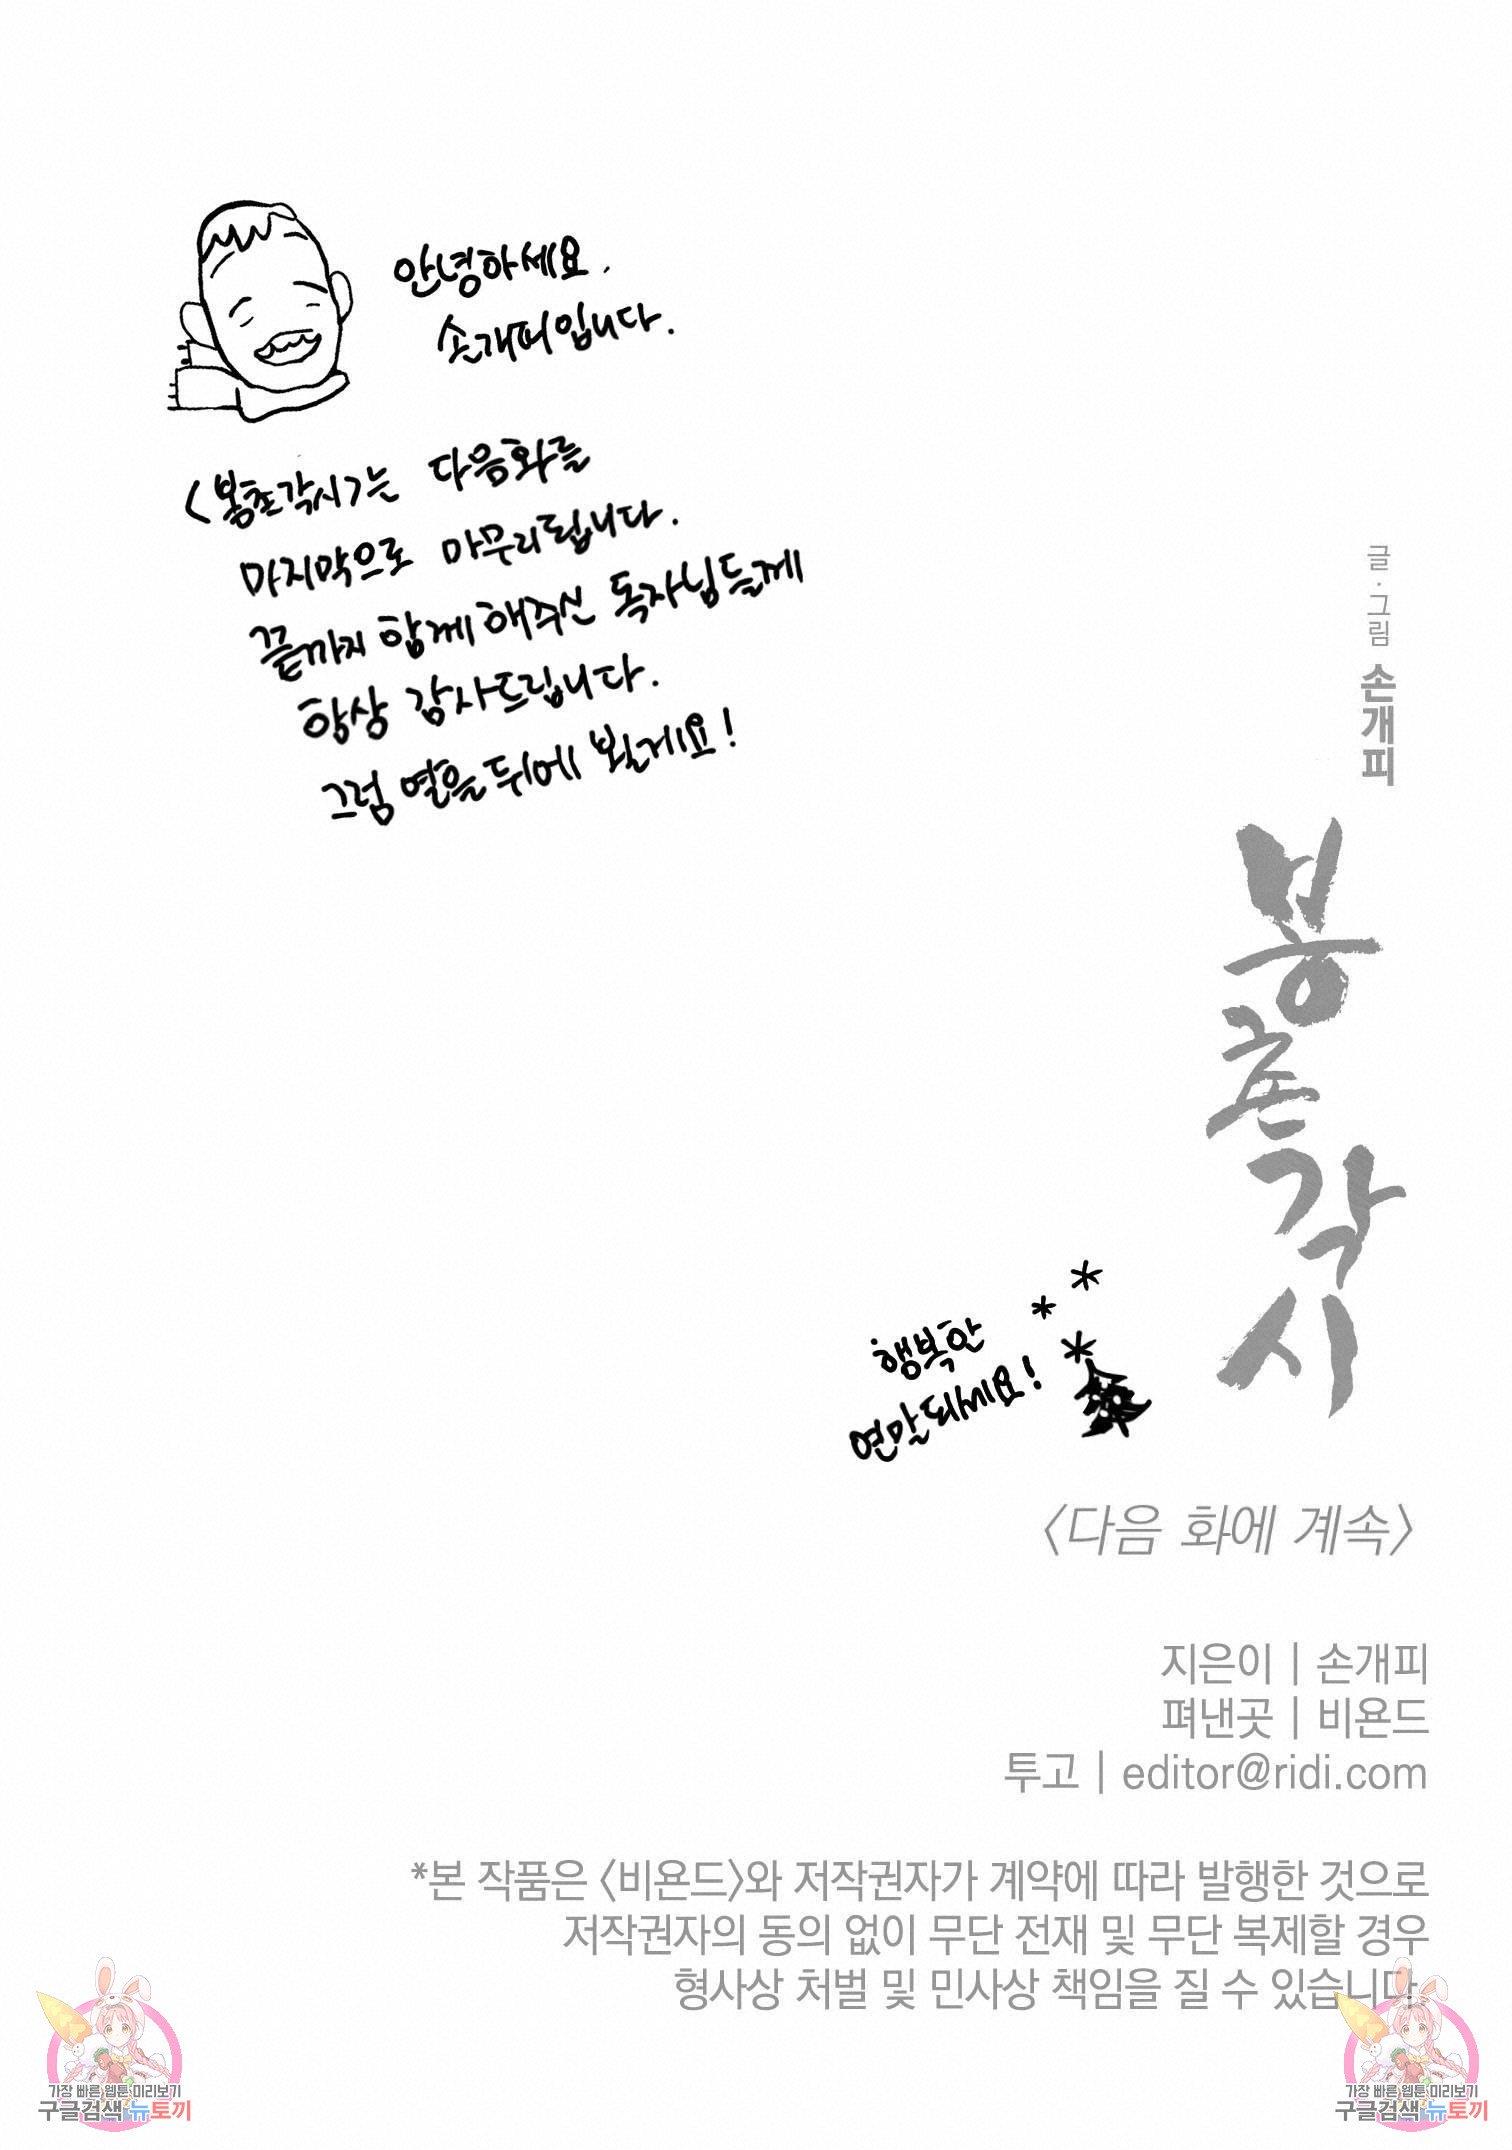 안녕하세요.
손개피입니다.
<봉촌각시>는 다음화를
마지막으로 마무리됩니다.
끝까지 함께해주신 독자님들께
항상 감사드립니다.
그럼 열흘 뒤에 뵐게요!
글·그림 손개피
봉촌각시
행복한
연말되세요!
<다음 화에 계속>
지은이 | 손개피
펴낸곳 | 비욘드
투고 | editor@ridi.com
*본 작품은 <비욘드>와 저작권자가 계약에 따라 발행한 것으로
저작권자의 동의 없이 무단 전재 및 무단 복제할 경우
형사상 처벌 및 민사상 책임을 질 수 있습니다.
가장 빠른 웹툰 미리보기
구글검색 뉴토끼
가장 빠른 웹툰 미리보기
구글검색 뉴토끼